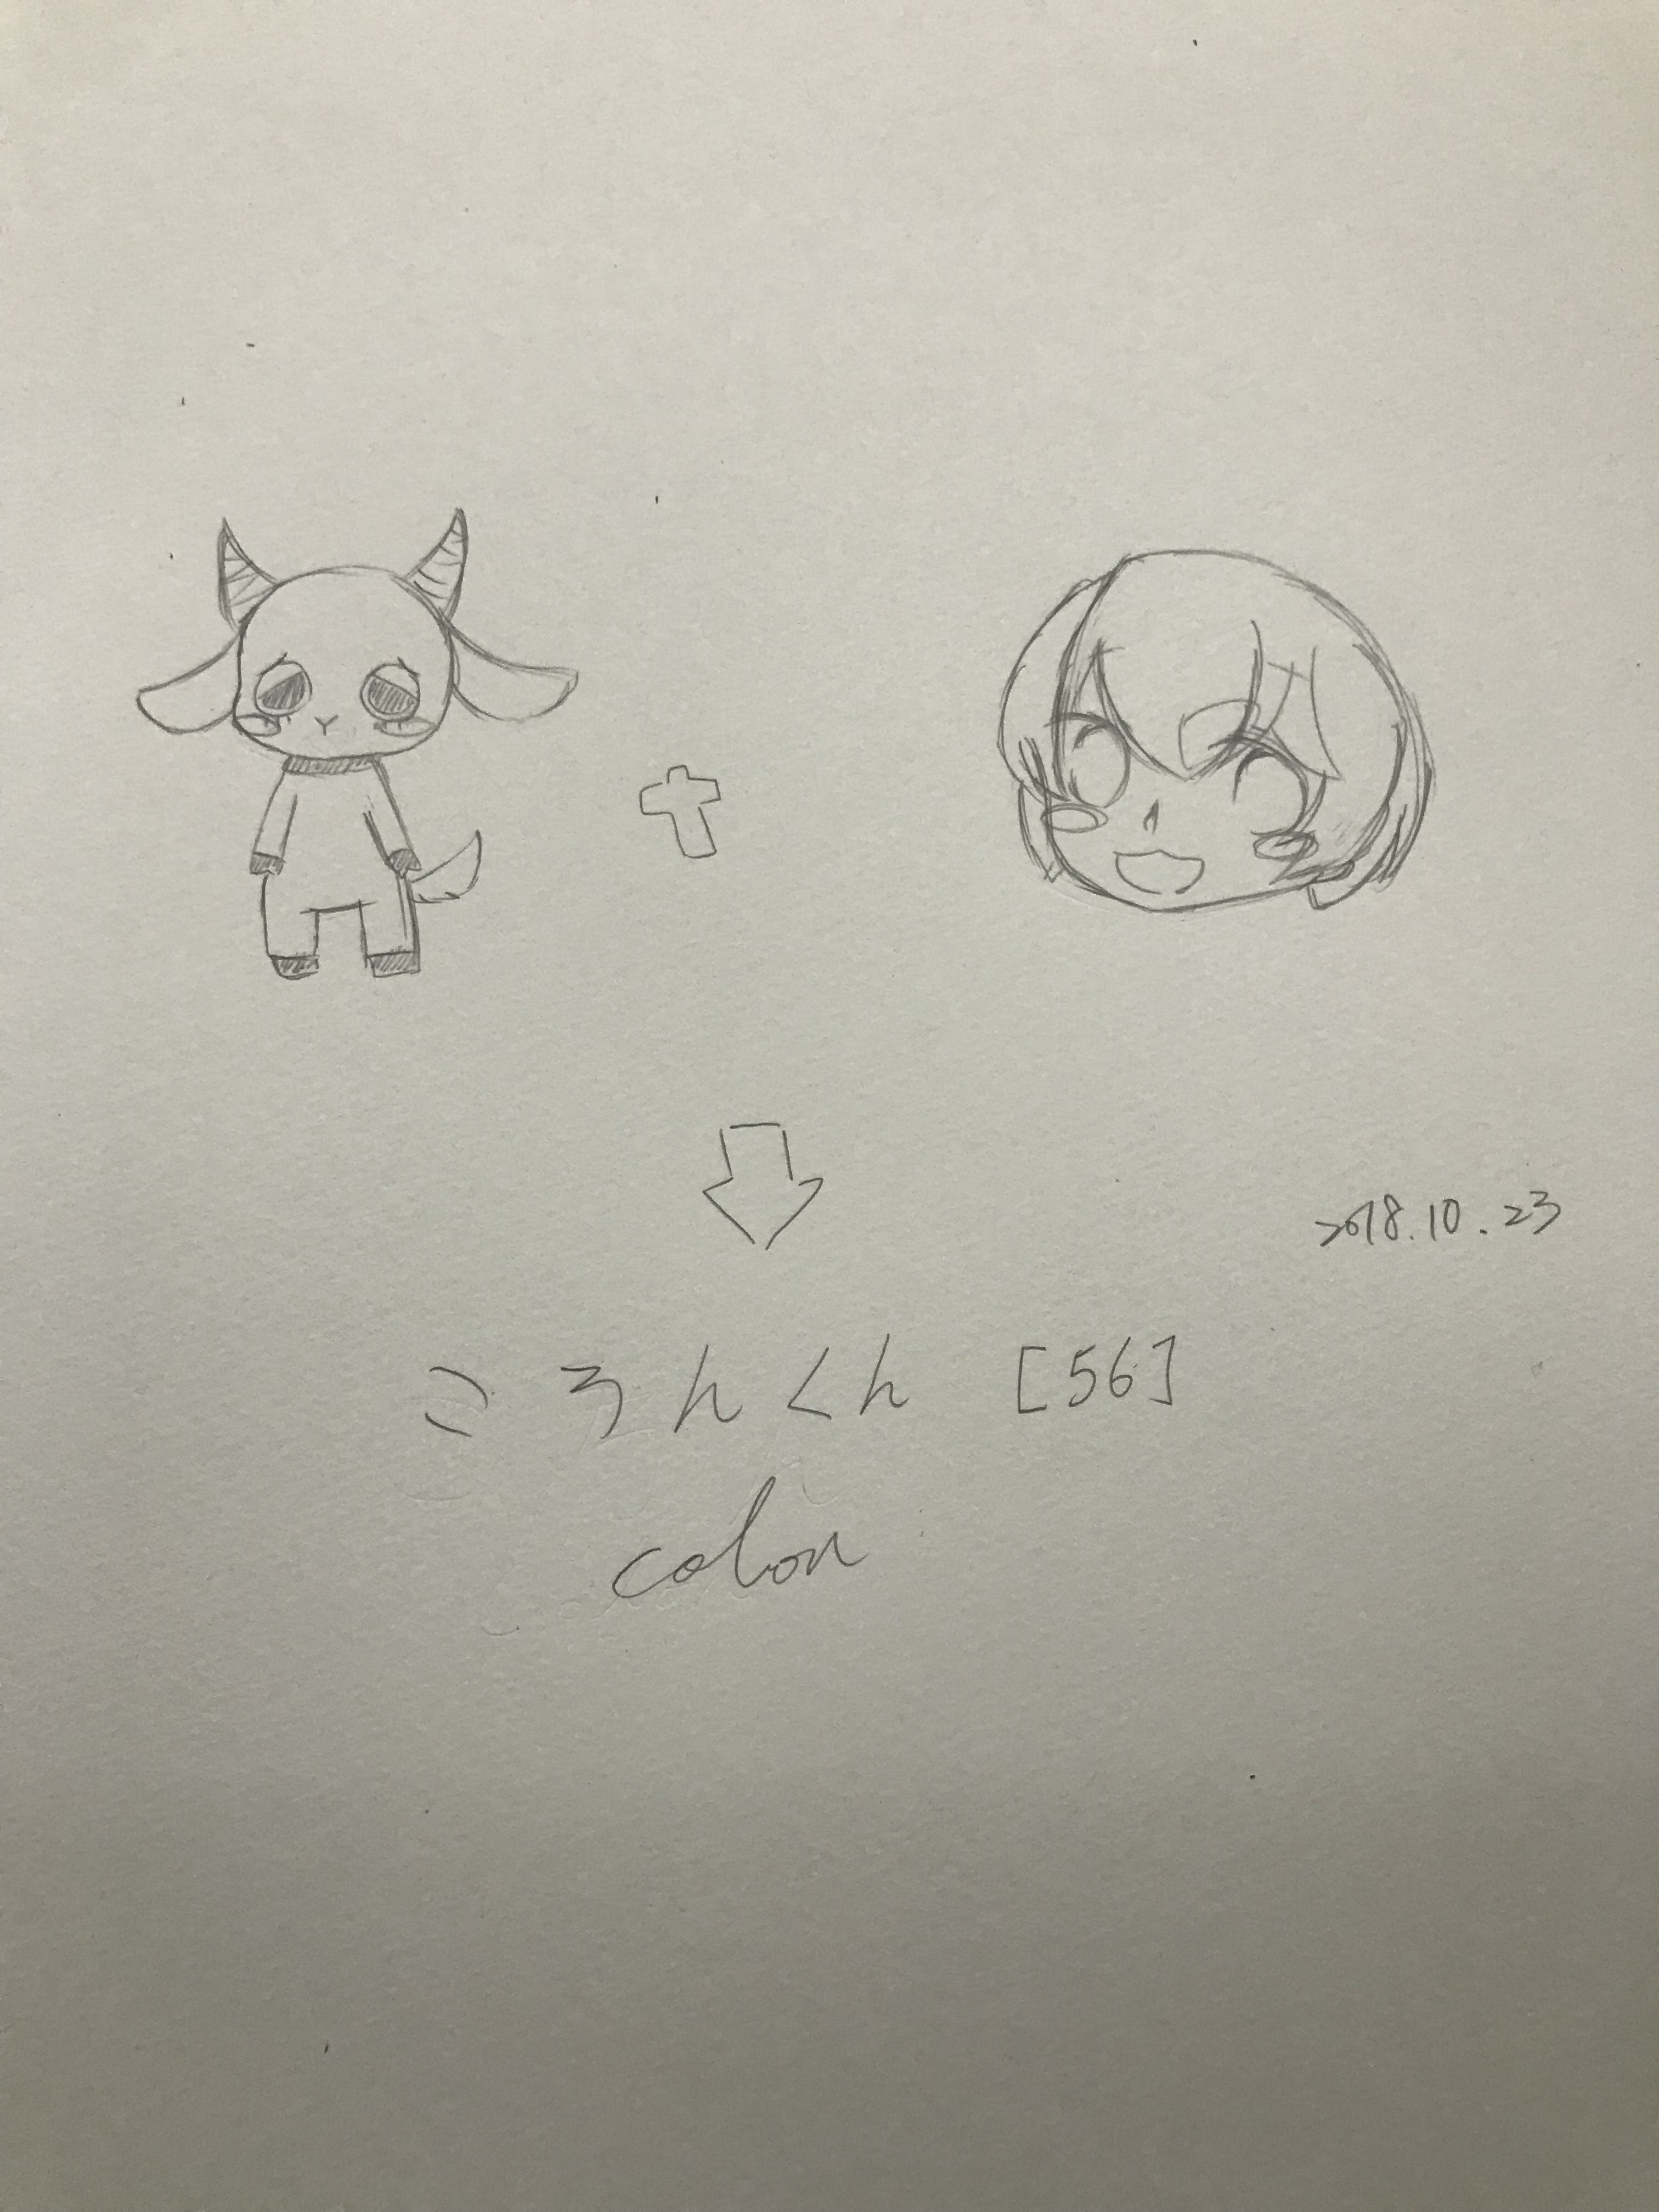 2018.10.23
ころんくん [56]
colon